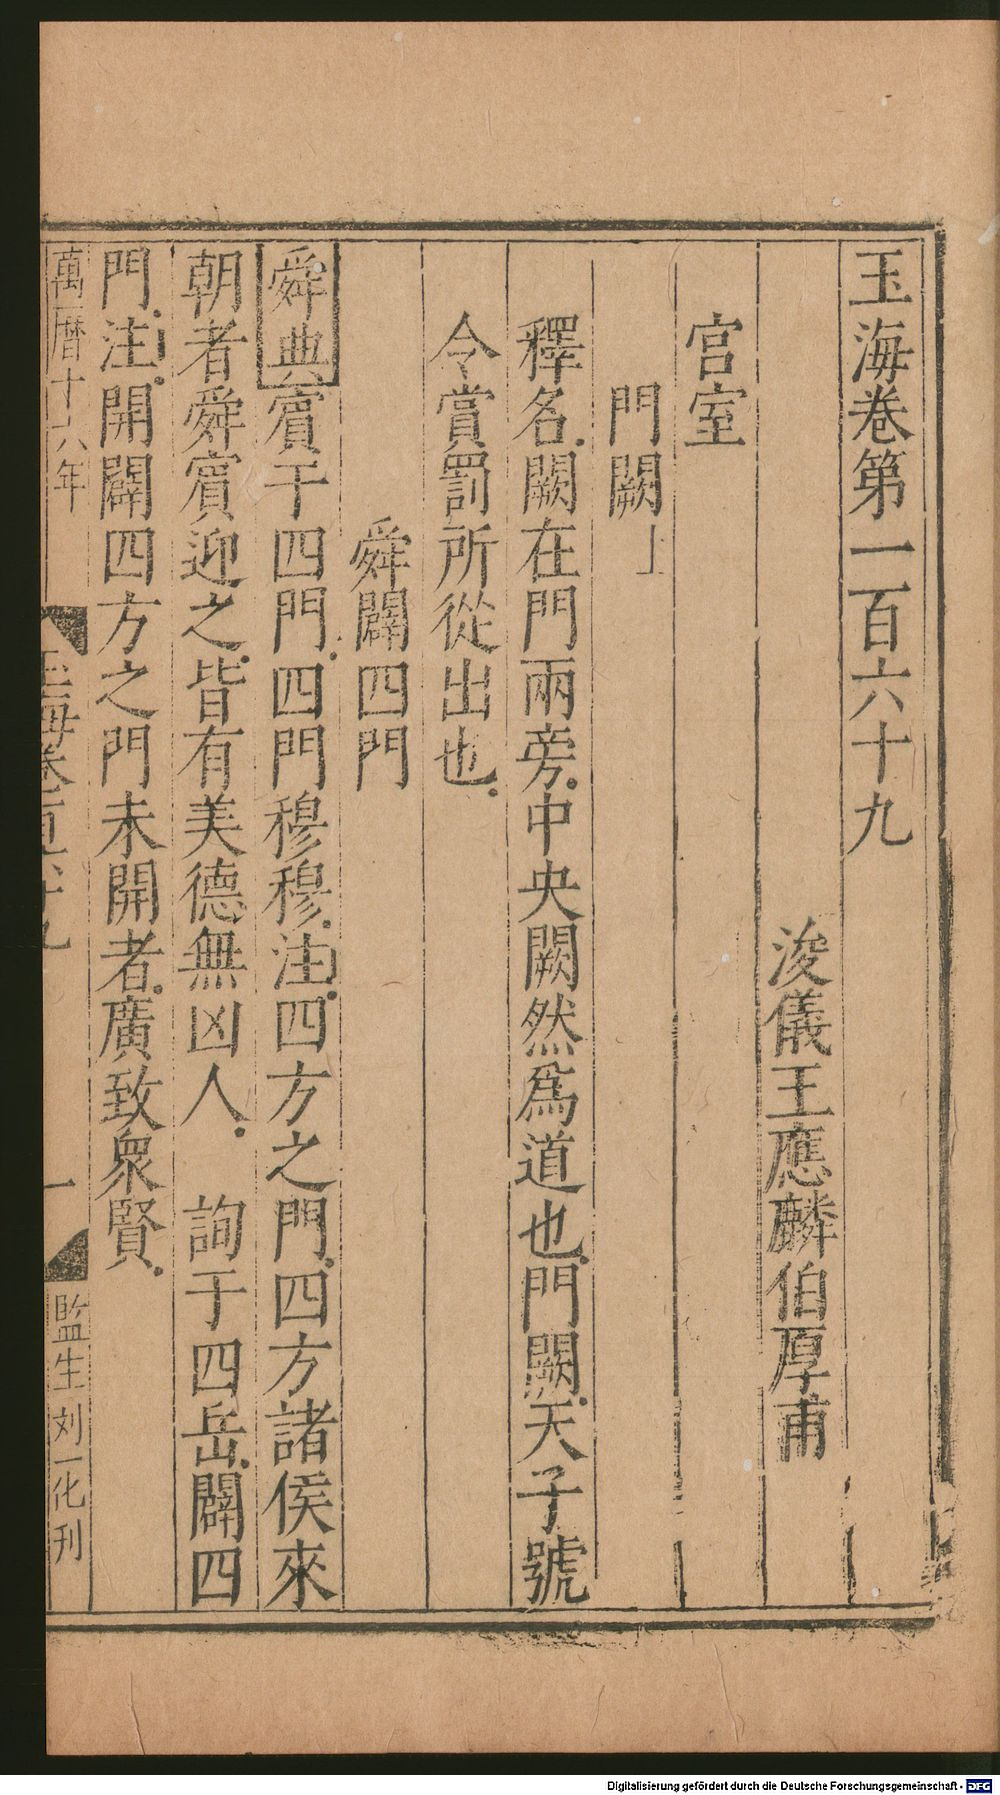 玉海卷第一百六十九
浚儀王應麟伯厚甫
宮室
門闕上
釋名.闕在門兩旁.中央闕然爲道也.門闕.天子號
令賞罰所從出也.
舜闢四門
舜典賓于四門.四門穆穆.注.四方之門.四方諸侯來
朝者舜賓迎之.皆有美德.無凶人.　詢于四岳.闢四
門.注.開闢四方之門未開者.廣致衆賢.
萬曆十六年
玉海卷百六十九
一
監生刘一化刊
Digitalisierung gefördert durch die Deutsche Forschungsgemeinschaft - DFG